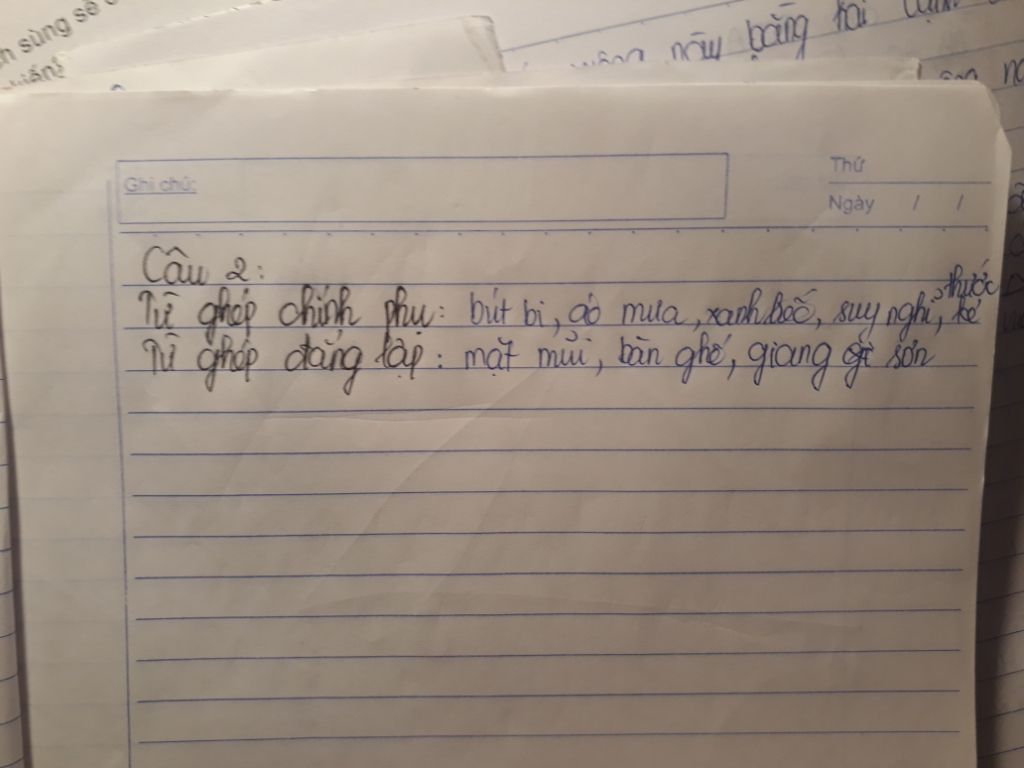 h sùng sẽ
khiến?
này bằng hai
Ghi chú:
Thứ
Ngày / /
Câu 2:
Từ ghép chính phụ: bút bi, áo mưa, xanh lốc, suy nghĩ, thước kẻ
Từ ghép đẳng lập: mặt mũi, bàn ghế, giang sơn